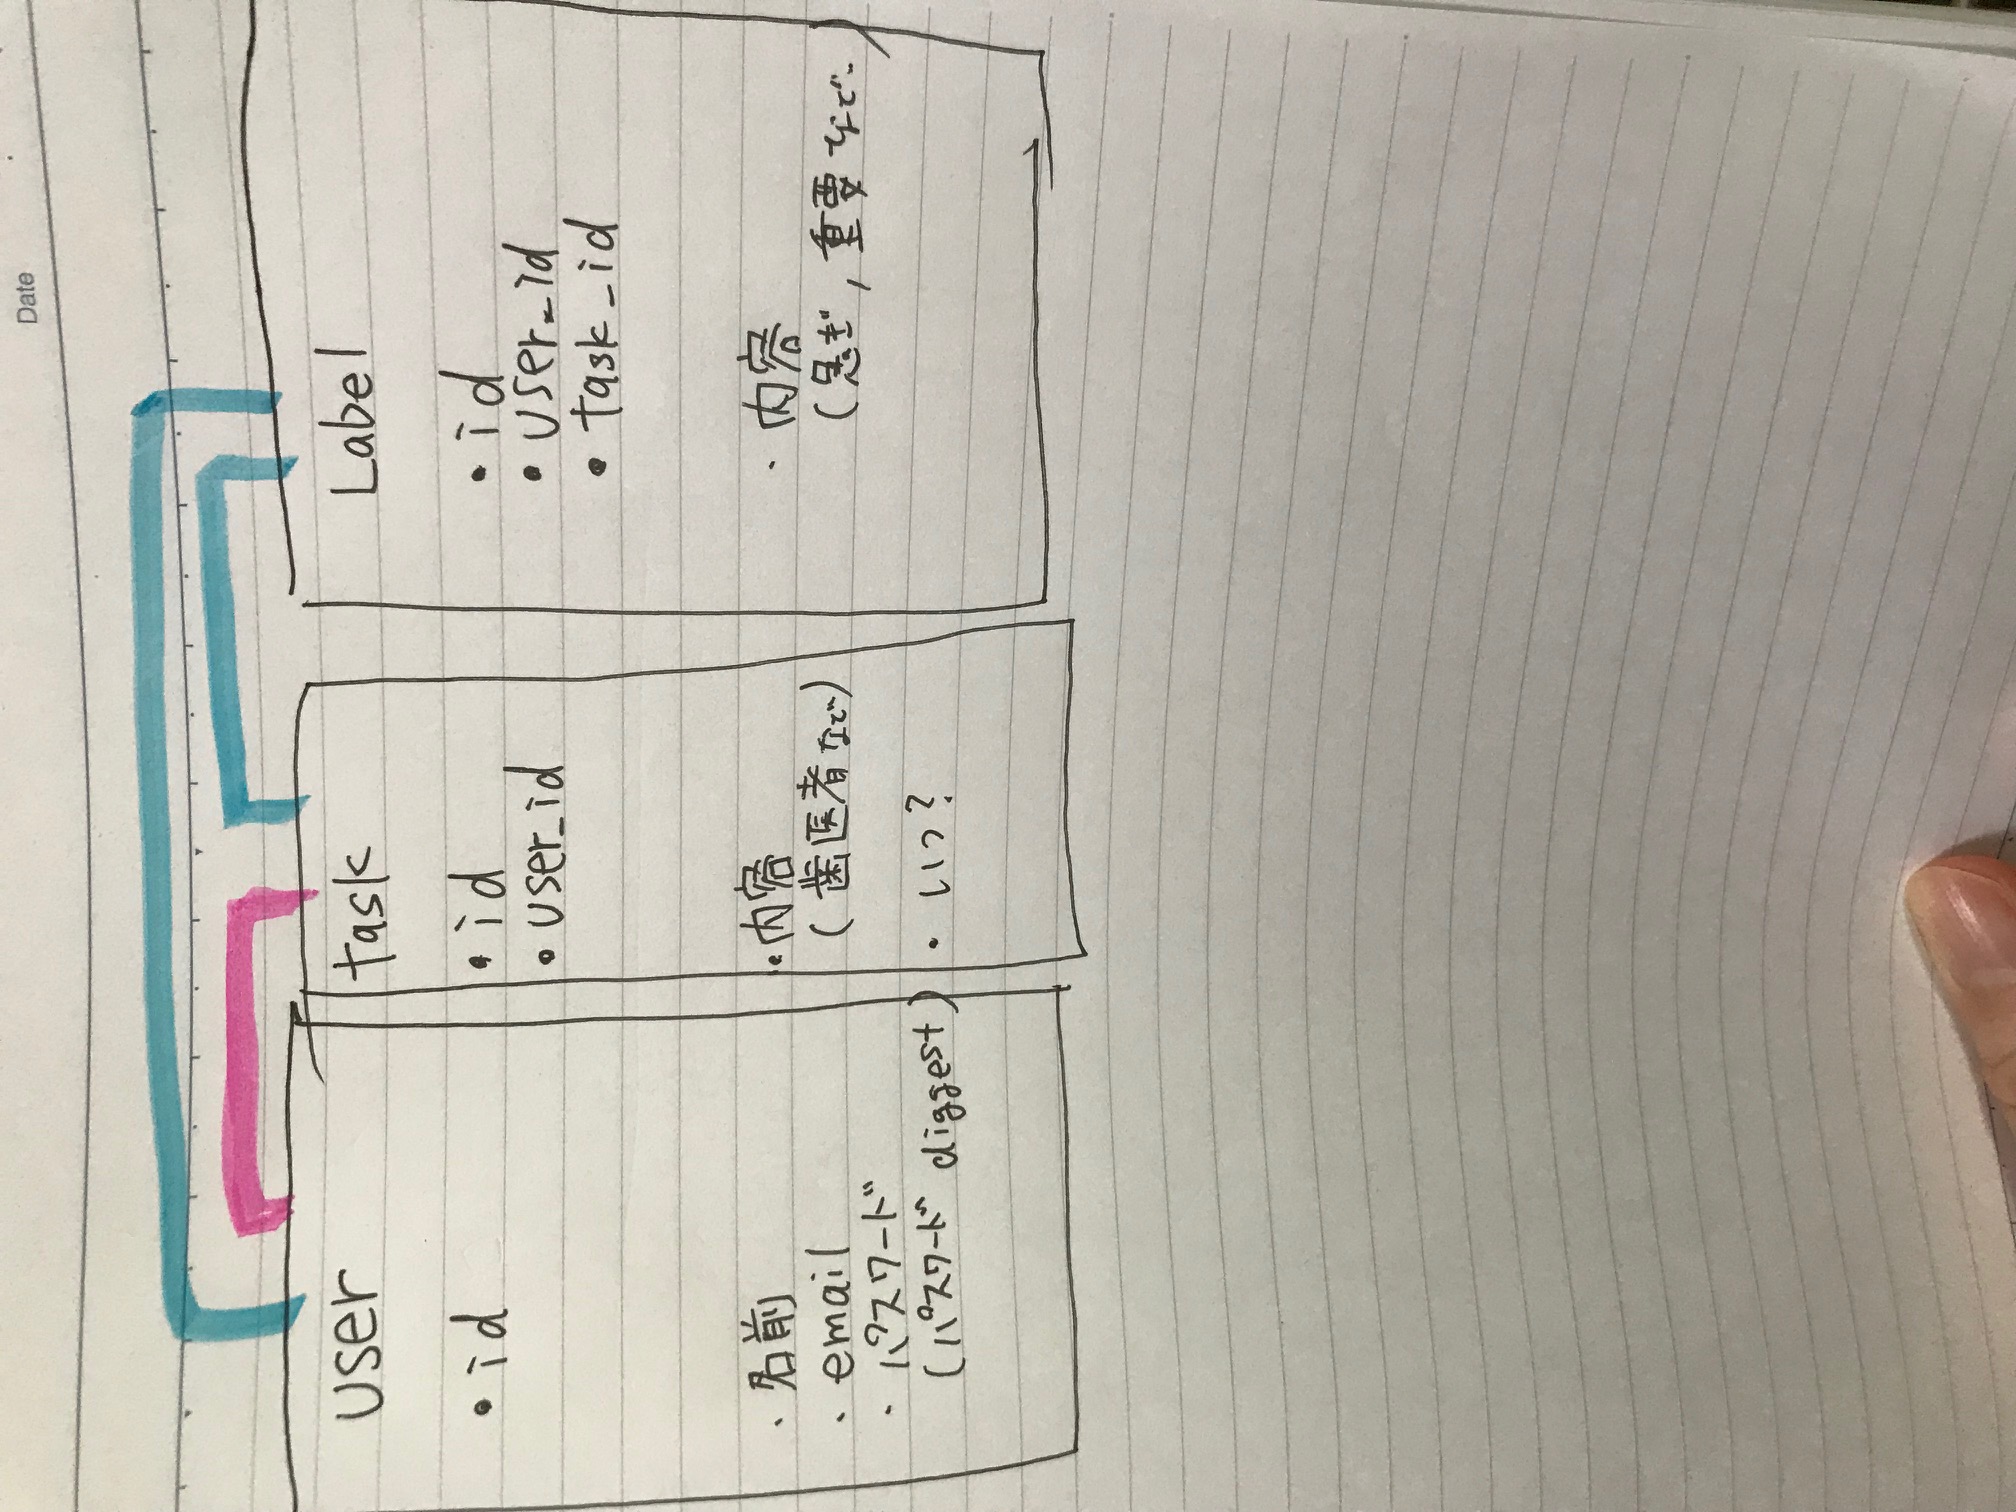 Date
user
・id
・名前
・email
・パスワード
(パスワード diggest)
task
・id
・user_id
・内容
(歯医者など)
・いつ?
Label
・id
・user_id
・task_id
・内容
(急ぎ,重要など)